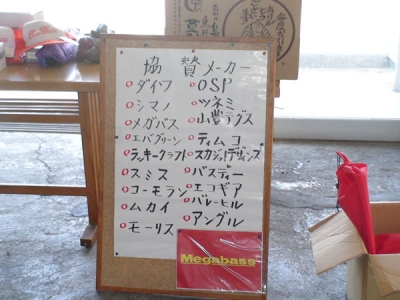 協賛メーカー
○ダイワ ○OSP
○シマノ ○ツネミ
○メガバス ○小堂テグス
○エバグリーン ○ティムコ
○ラッキークラフト ○スカジットデザインズ
○スミス ○バスディー
○コーモラン ○エコギア
○ムカイ ○バレーヒル
○モーリス ○アングル
Megabass